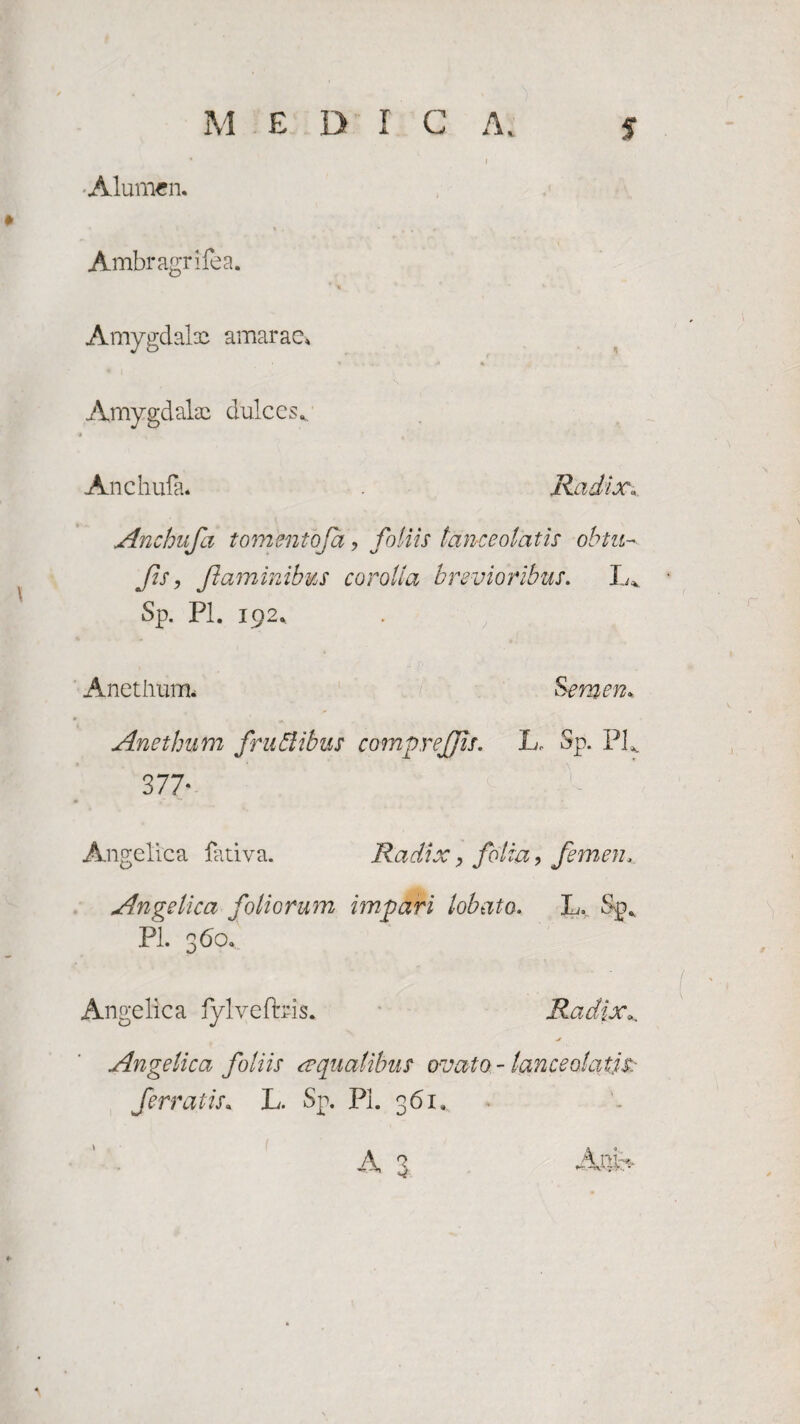 MEDICA. 5
Alumen.
Ambragriſea.
Amygdalæ amarae.
Amygdalæ dulces.
Anchuſa. Radix.
Anchuſa tomentoſa, foliis lanceolatis obtu-
ſis, ſtaminibus corolla brevioribus. L.
Sp. Pl. 192.
Anethum. Semen.
Anethum fructibus compreſſis. L. Sp. Pl.
377.
Angelica ſativa. Radix, folia, ſemen.
Angelica foliorum impari lobato. L. Sp.
Pl. 360.
Angelica ſylveſtris. Radix.
Angelica foliis æqualibus ovato-lanceolatis
ſerratis. L. Sp. Pl. 361.
A 3 Ani-